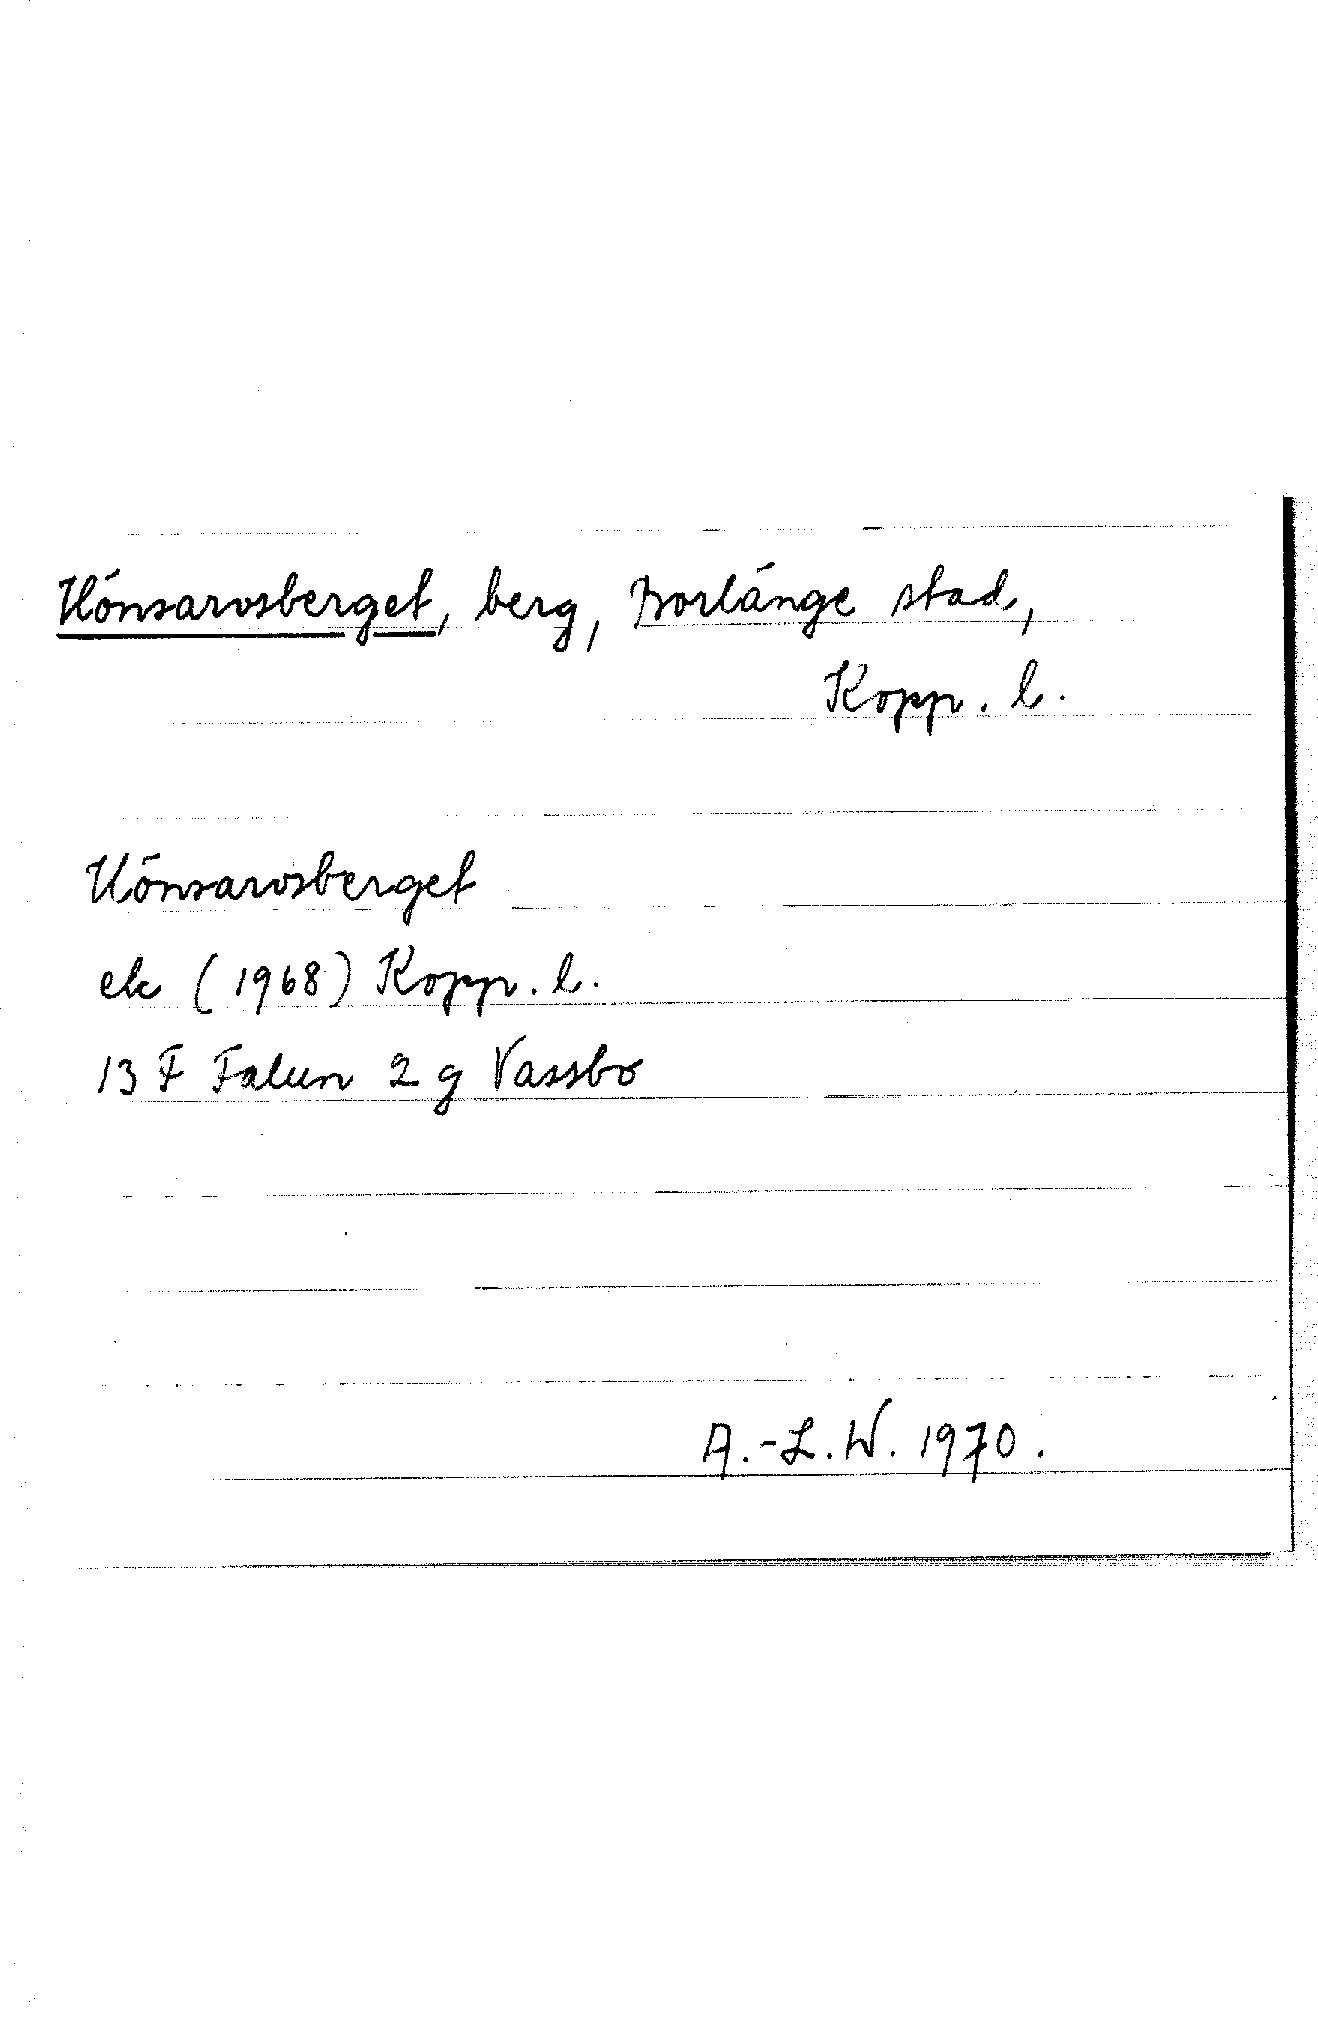 Hönsarvsberget, berg, Borlänge stad,
Kopp. l.
Hönsarvsberget
ek (1968) Kopp. l.
13 F Falun 2 g Vassbo
A.-L.W. 1970.